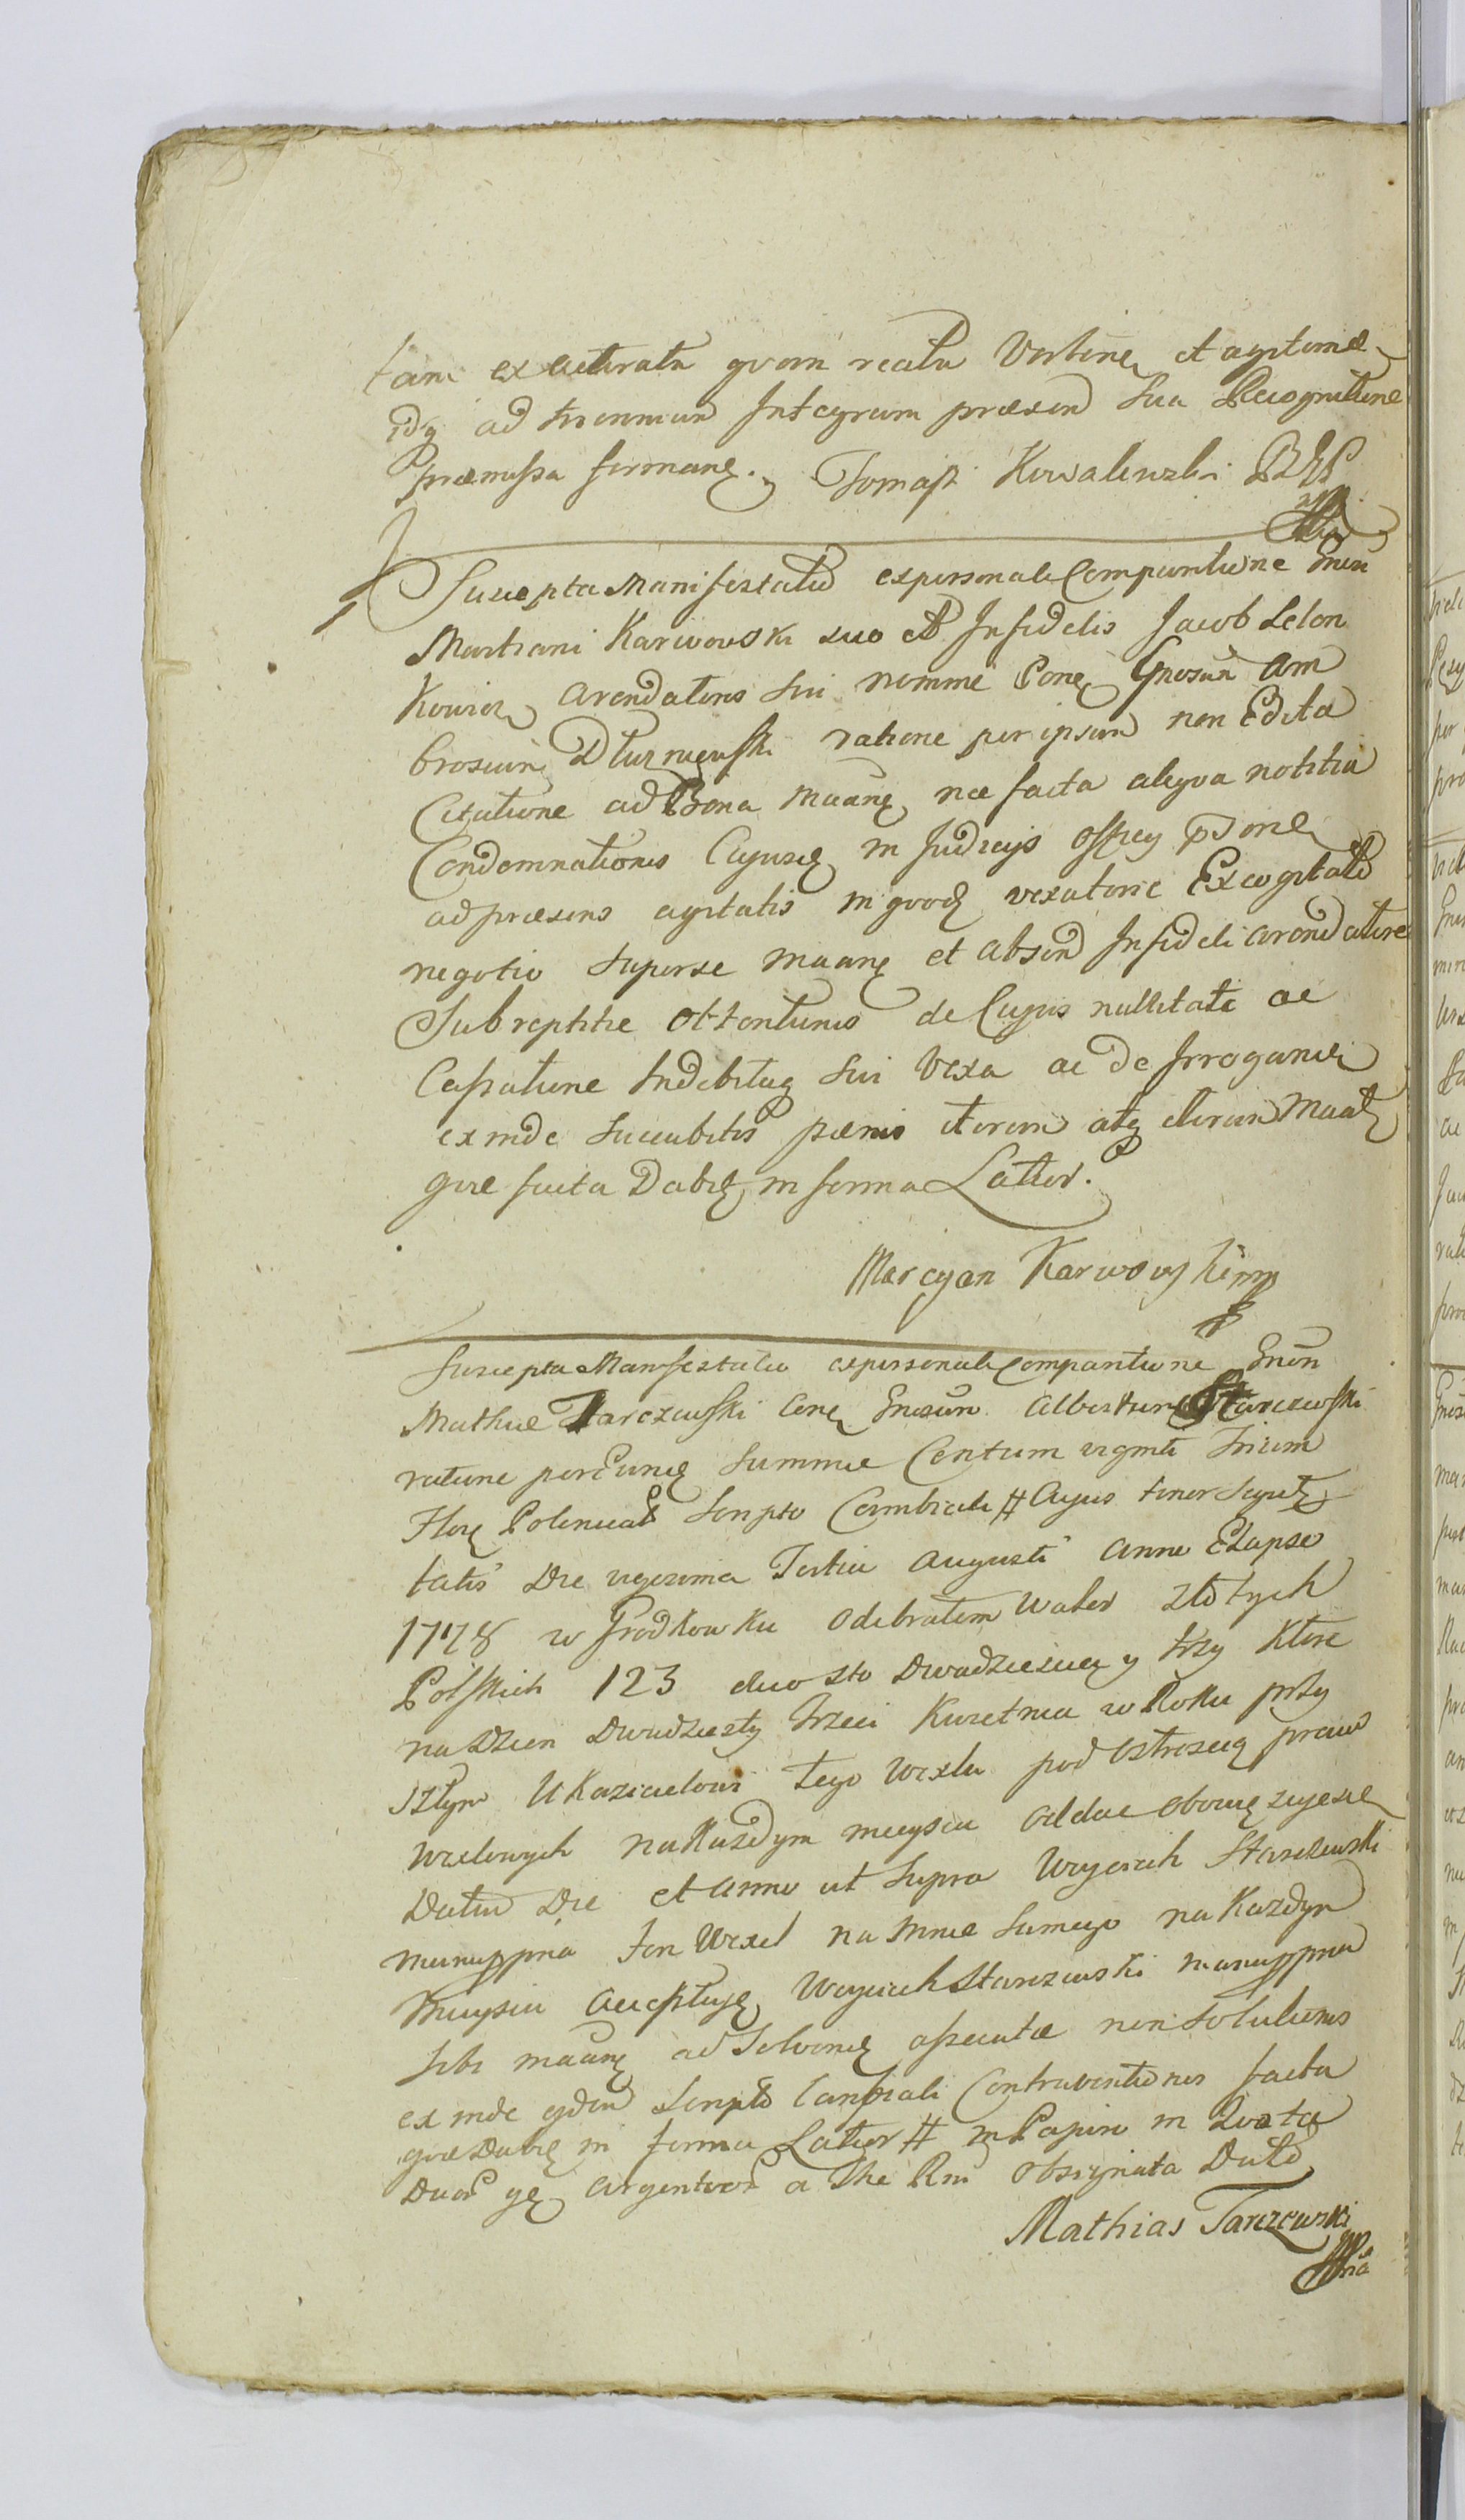 tam ex activitate quam reatu
idq ad tremmun Integrum praesen sua Recognitione
praemissa firmane. Tomasz Kowalewski
Suscepta Manifestatio ex personali Comparitione Gnosi
Martiani Karwowski suo et Infidelis Jacob Lelon
Kowicz Arendatoris sui nomine Cone Gnosum Am
brosium Dłuzniewski ratione per ipsum non Edita
Citatione ad Bona Maane nec facta aliqva notitia
Condemnationis Cujusq in Judicijs Officij
ad praesens agitatis in qvod vexatorie Excogitato
negotio super se maane et absen Infideli arendatore
Subreptitie obtentionis de Cujus nullitate ac
Cassatione Indebitaq sui Vexa ac de Irroganis
ex inde succubitis paenis iterum atq iterum Maat
qvae facta Dabit in forma Latior.
Marcyan Karwowski mp
Suscepta Manifestatio ex personali Comparitione Gnosi
Mathiae Tarczewski Cone Gnosum Albertum Starczewski
ratione Summae Centum viginti Trium
Flor Polonical Scripto Cambiali # Cujus tenor Seqvit
talis Die vigesima Tertia Augusti Anno Elapso
1778 w Grodkowku Odebrałem Walor złotych
Polskich 123 dico sto Dwadziescia y trzy Ktore
na Dzien Dwudziesty Trzeci Kwietnia w Roku przy
szłym Ukazicielowi tego Wexlu pod Ostroscią praw
Wexlowych na Każdym mieyscu oddac obowięzuję się
Datum Die et Anno ut Supra Woyciech Starczewski
manuppria ten Wexel na Mnie Samego na Kazdym
Mieyscu Acceptuję Woyciech Starczewski manuppria
sibi maane ad Solvend assecutae non Solutionis
ex inde ejdem Scripto Cambiali Contraventionis facta
qvae Dabit in forma Latior # in Papiro in Qvota
Duor gr argenteor a The Rni Obsignata Dato
Mathias Tarczewski
mpria